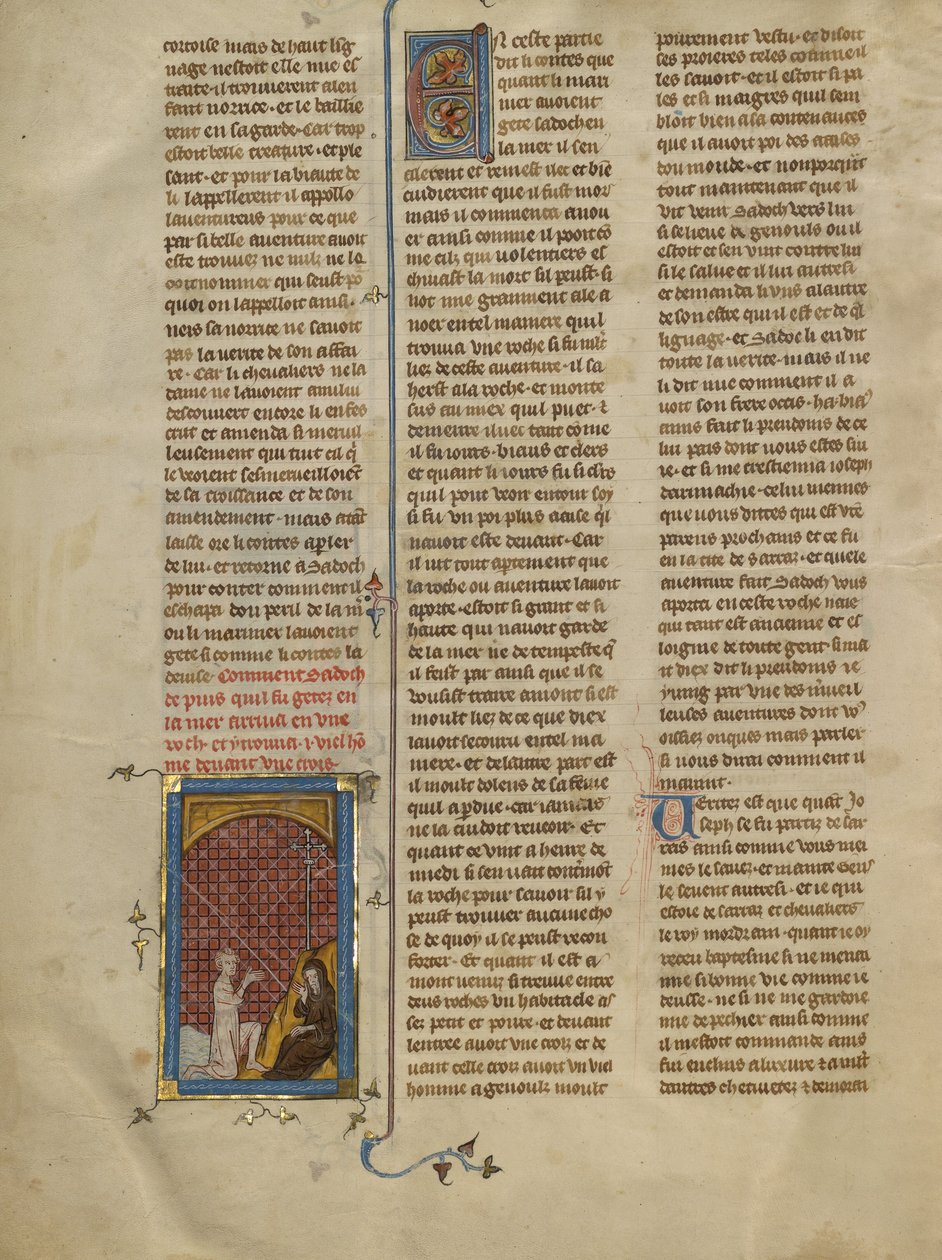 cortoise mais de haut lig
nage nestoit elle mie es
traite · il trouverent a len
fant norrice · et le baillie
rent en sa garde · Car trop
estoit belle creature · et ple
sant · et pour la biaute de
li lappellerent il appollo
laventureus pour ce que
par si belle aventure avoit
este trouvez ne nulz ne lo
oit nommer qui seust po
quoi on lappelloit ainsi ·
neis sa norrice ne savoit
pas la verite de son affai
re · Car li chevaliers ne la
dame ne lavoient a nului
descouvert encore li enfes
crut et amenda si merveil
leusement qui tuit cil q
le veoient sesmerveilloient
de sa croissance et de son
amendement · mais atant
laisse ore li contes a pler
de lui · et retorne a Sadoch
pour conter comment il
eschapa dou peril de la m
ou li marinier lavoient
gete si comme li contes la
devise · Comment Sadoch
de puis quil fu getez en
la mer arriva en une
roch · et y trouva · i · viel ho
me devant une crois ·
En ceste partie
dit li contes que
quant li mari
nier avoient
gete sadoch en
la mer il sen
alerent et remest ilec et bien
cuidierent que il fust mors
mais il commenca a nou
er ainsi comme il pooit co
me cilz qui volentiers es
chivast la mort sil peust · si
not mie granment ale a
noer en tel maniere quil
trouva une roche si fu mlt
liez de ceste aventure · il sa
herst a la roche · et monte
sus au miex quil puet · &
demeure iluec tant come
il fu iours · biaus et clers
et quant li iours fu si clers
quil pout veoir entour soy
si fu un poi plus aaise ql
navoit este devant · Car
il vit tout apertement que
la roche ou aventure lavoit
aporte · estoit si grant et si
haute qui navoit garde
de la mer ne de tempeste q
il feist par ainsi que il se
vousist traire amont si est
moult liez de ce que diex
lavoit secouru en tel ma
niere · et delautre part est
il moult dolens de sa feme
quil a perdue · car iamais
ne la cuidoit reveoir · Et
quant ce vint a heure de
miedi si sen vait contremont
la roche pour savoir sil y
peust trouver aucune cho
se de quoy il se peust recon
forter · Et quant il est a
mont venuz si treuve entre
deus roches un habitacle as
sez petit et povre · et devant
lentree avoit une croiz et de
vant celle croiz avoit un viel
homme a genoulz moult
povrement vestu · et disoit
ses proieres teles comme il
les savoit · et il estoit si pa
les et si maigres quil sem
bloit bien a sa contenances
que il avoit poi des aaises
dou monde · et nonporqnt
tout maintenant que il
vit venir Sadoch vers lui
si se lieve de genouls ou il
estoit et sen vint contre lui
si le salue et il lui autresi
et demanda li uns a lautre
de son estre qui il est et de ql
lignage · et Sadoc li en dit
toute la verite · mais il ne
li dit mie comment il a
voit son frere occis · ha · biax
amis fait li preudoms de ce
lui pais dont vous estes sui
ie · et si me crestienna ioseph
darimachie · celui meismes
que vous dittes qui est vre
parens prochains et ce fu
en la cite de sarraz · et quele
aventure fait Sadoch vous
aporta en ceste roche naie
qui tant est ancienne et es
loignie de toute gent · si mai
it diex dit li preudoms ie
y ving par une des merveil
leuses aventures dont vos
oissiez onques mais parler
si vous dirai comment il
mavint ·
Veritez est que quant Jo
seph se fu partiz de sar
ras ainsi comme vous mei
mes le savez · et mainte gens
le sevent autresi · et ie qui
estoie de sarraz et chevaliers
le roy mordrain · quant ie oy
receu baptesme si ne menai
mie si bonne vie comme ie
deusse · ne si ne me gardoie
mie de pechier ainsi comme
il mestoit commande ains
fui enclins a luxure & a mlt
dautres chetivetez & demorai